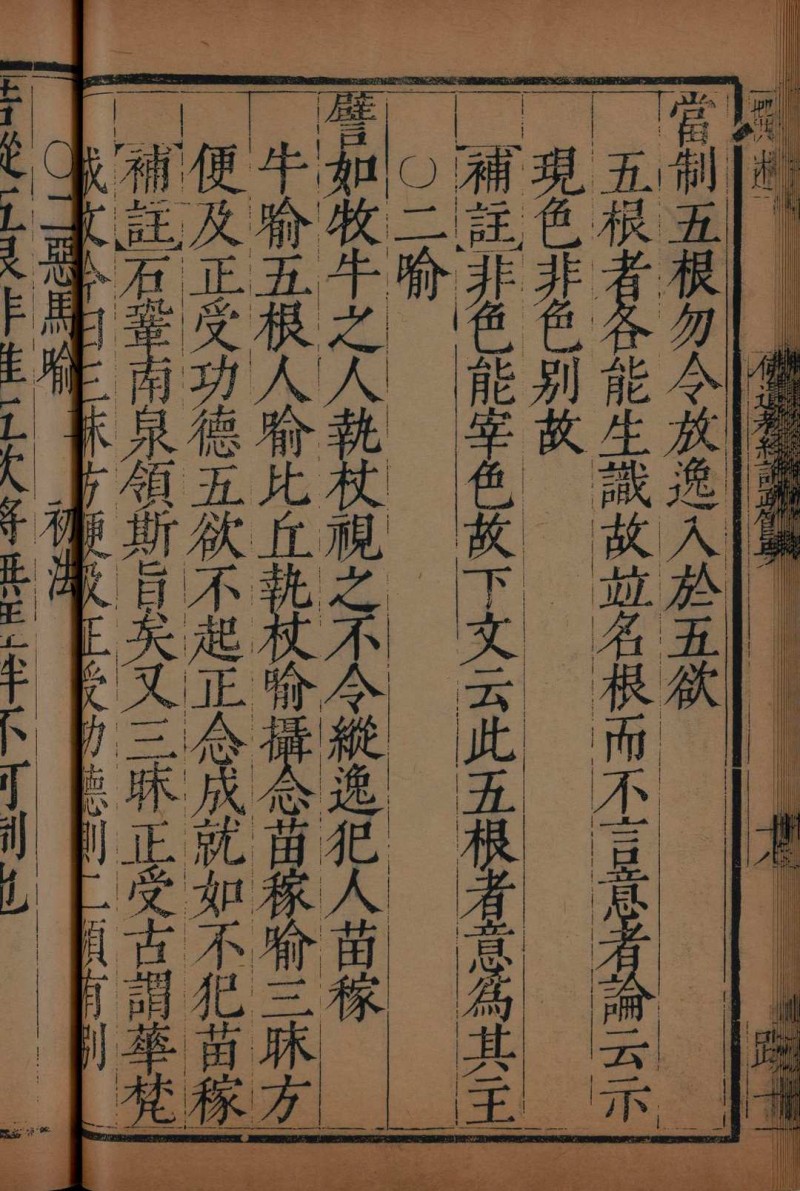 當制五根勿令放逸入於五欲
五根者各能生識故竝名根而不言意者論云示
現色非色别故
補註非色能宰色故下文云此五根者意爲其主
○二喻
譬如牧牛之人執杖視之不令縱逸犯人苗稼
牛喻五根人喻比丘執杖喻攝念苗稼喻三昧方
便及正受功德五欲不起正念成就如不犯苗稼
補註石鞏南泉領斯旨矣又三昧正受古謂華梵
三昧方便及正受功德則二須有别
○二惡馬喻 初法
若縱五根非唯五欲將無崖畔不可制也